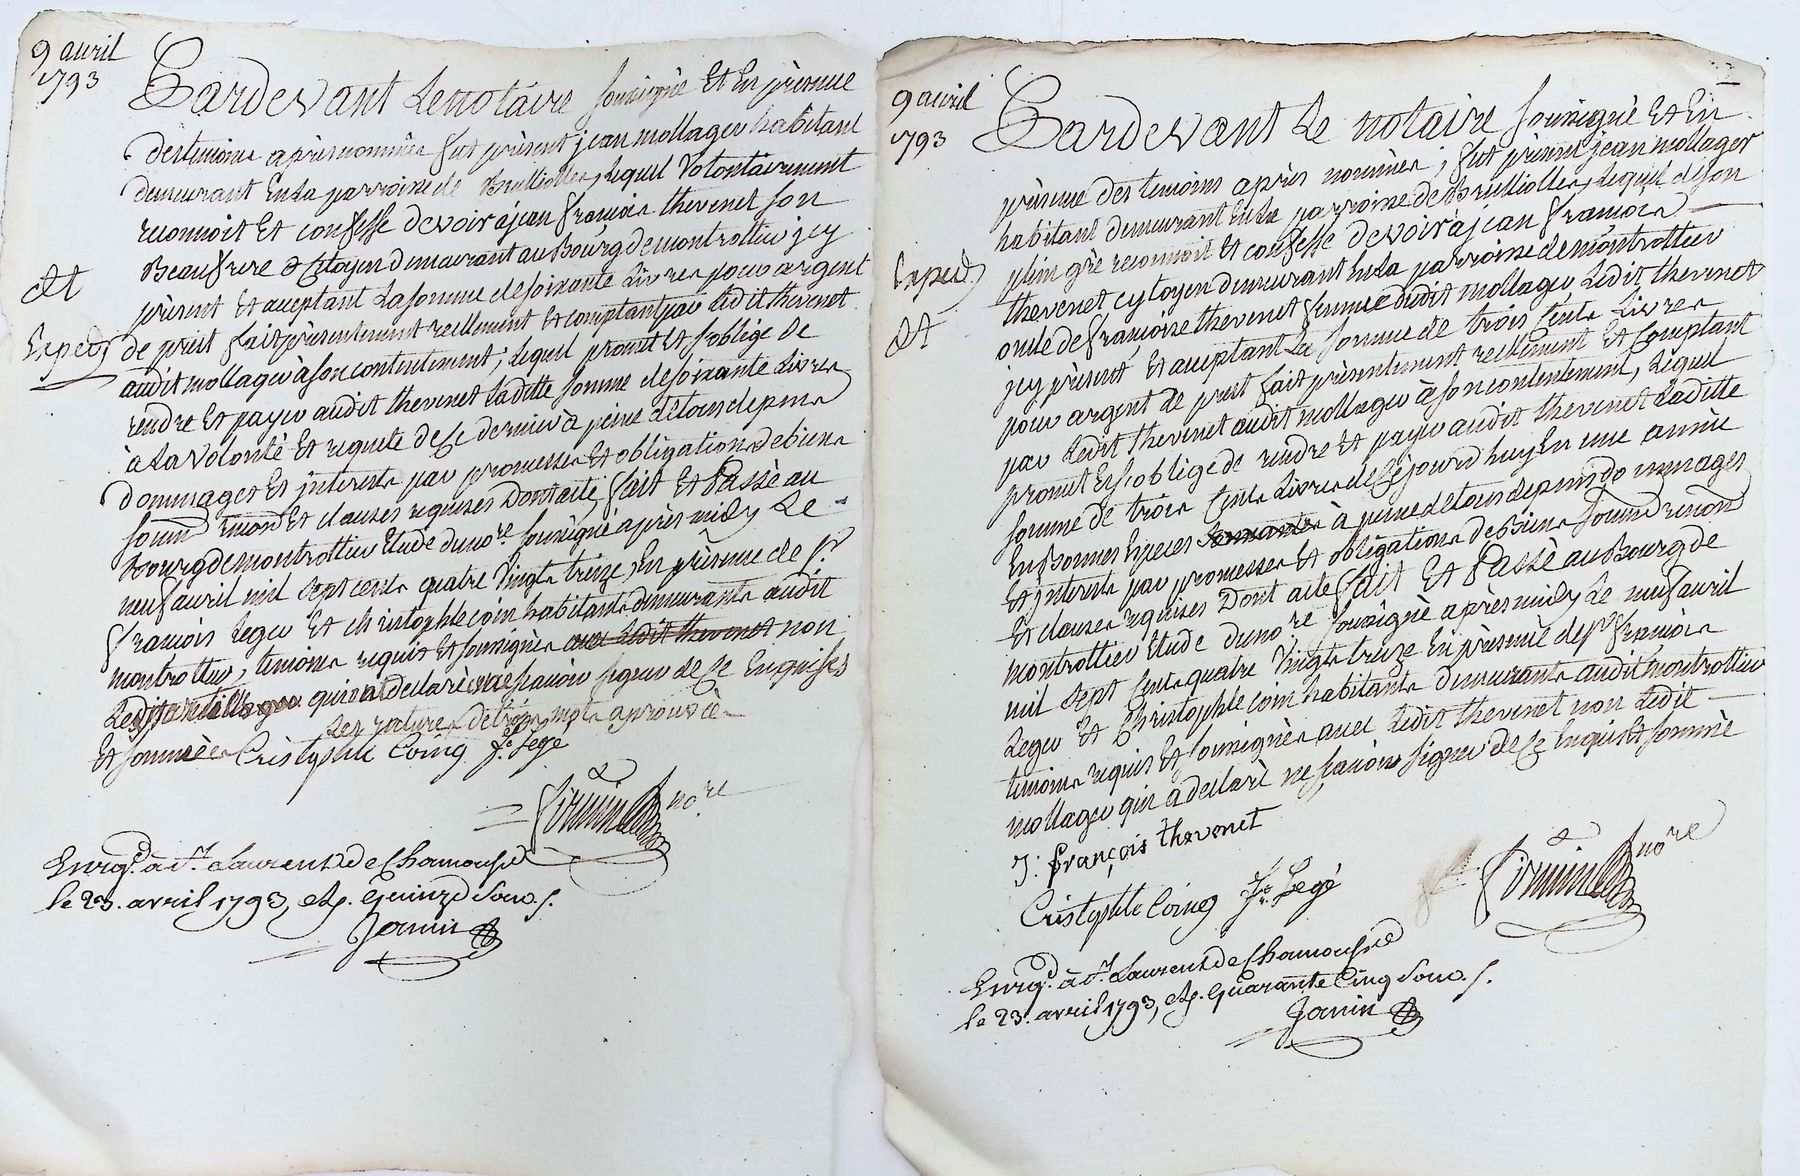 9 avril
1793
Pardevant Le notaire soussigné Et En présence
des temoins après nommés fut présent jean mollager habitant
demeurant En La parroisse de Brullioles, Lequel Volontairement
reconnoit Et confesse devoir à jean françois thevenet son
Beaufrere & Citoyen demeurant au Bourg de montrottier jcy
présent Et acceptant La somme de soixante Livres pour argent
de prest fait présentement reellement Et comptant par Ledit thevenet
audit mollager à son contentement; Lequel promet Et s'oblige de
rendre Et payer audit thevenet Laditte somme de soixante Livres
à La Volonté Et requete de Ce dernier à peine de tous depens
dommages Et jnterests par promesses Et obligations de biens
soum renon Et clauses requises Dont acte, fait Et Passé au
Bourg de montrottier Etude du nore soussigné après midy Le
neuf avril mil sept cents quatre Vingts treize, En présence de Sr
françois Leger Et christophle coin habitants demeurants audit
montrottier, temoins requis Et soussignés avec Ledit thevenet non
Ledit qui ont declaré ne scavoir signer de Ce Enquises
Les ratures de trois mots aprouvée
Et sommées Cristophle Coing fs Legé
Et
Exped
Firmin nore
Enrgd à St Laurent de Chamousset
le 23. avril 1793, R. quinze sous s.
Janin
9 avril
1793
Pardevant Le notaire soussigné Et En
présence des temoins après nommés; fut présent jean mollager
habitant demeurant En La parroisse de Brullioles, Lequel de son
plein gré reconnoit Et confesse devoir à jean françois
thevenet cytoyen demeurant En La parroisse de montrottier
oncle de françoise thevenet femme dudit mollager Ledit thevenet
jcy présent Et acceptant La somme de trois Cents Livres
pour argent de prest fait présentement reellement Et Comptant
par Ledit thevenet audit mollager à son contentement, Lequel
promet Et s'oblige de rendre Et payer audit thevenet Laditte
somme de trois Cents Livres de Ce jourd'huy En une année
En Bonnes Especes à peine de tous depens dommages
Et jnterests par promesses Et obligations de Biens soum renon
Et clauses requises Dont acte fait Et Passé au Bourg de
montrottier Etude du nore soussigné après midy Le neuf avril
mil sept Cents quatre Vingts treize En présence de Sr françois
Leger Et Christophle coin habitants demeurants audit montrottier
temoins requis Et soussignés avec Ledit thevenet non Ledit
mollager qui a declaré ne scavoir signer de Ce Enquis Et sommé
Exped
Et
J: françois thevenet
Cristophle Coing fs Legé
Firmin nore
Enrgd à St Laurent de Chamousset
le 23. avril 1793, R. quarante Cinq sous s.
Janin